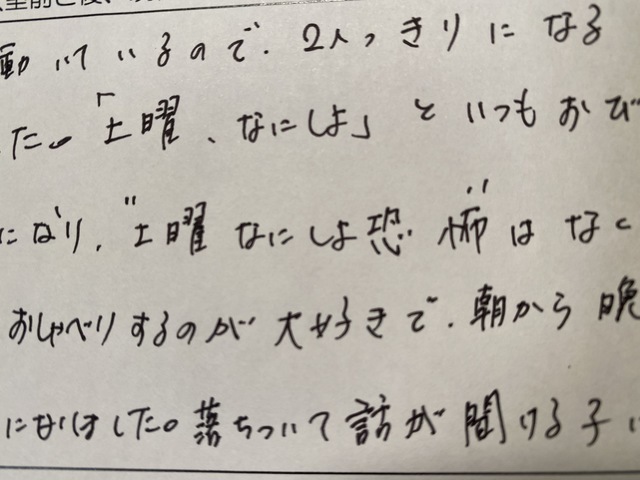 動いているので、2人っきりになる
た。「土曜、なにしよ」といつもおび
になり、"土曜なにしよ恐怖"はなく
おしゃべりするのが大好きで、朝から晩
になりました。落ちついて話が聞ける子に